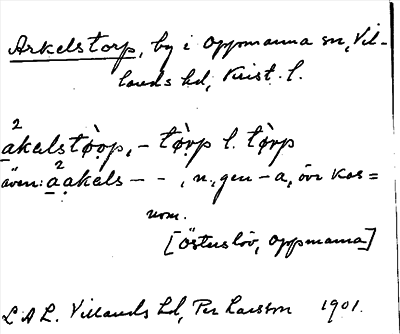 Arkelstorp, by i Oppmanna sn, Vil-
lands hd, Krist. l.
²akelstòrp, - tòrp l. tòrp
även: a²akels - - , n, gen - a, övr kas=
nom.
[Österslöv, Oppmanna]
L.A.L. Villands hd, Per Larsson 1901.